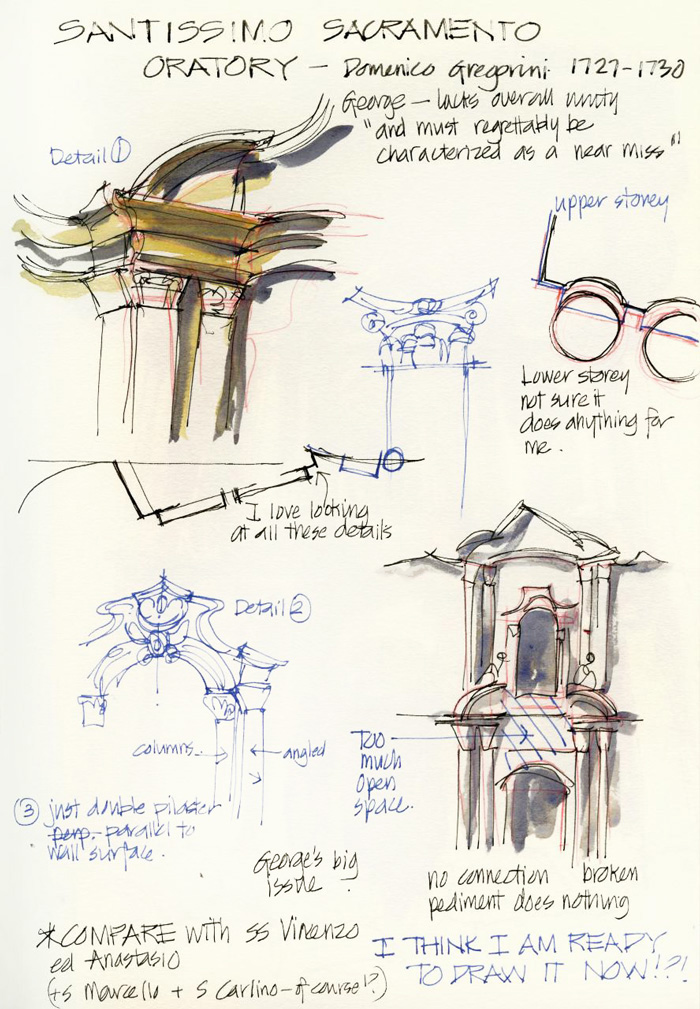 SANTISSIMO SACRAMENTO
ORATORY – Domenico Gregorini 1727-1730
George – lacks overall unity
"and must regrettably be
characterized as a near miss"
Detail ①
upper storey
Lower storey
not sure it
does anything for
me.
I love looking
at all these details
Detail ②
columns
angled
③ just double pilaster
perp. parallel to
wall surface.
Too
much
open
space.
George's big
issue
no connection broken
pediment does nothing
*COMPARE with SS Vincenzo
ed Anastasio
(+S Marcello + S Carlino – of course!?)
I THINK I AM READY
TO DRAW IT NOW!?!